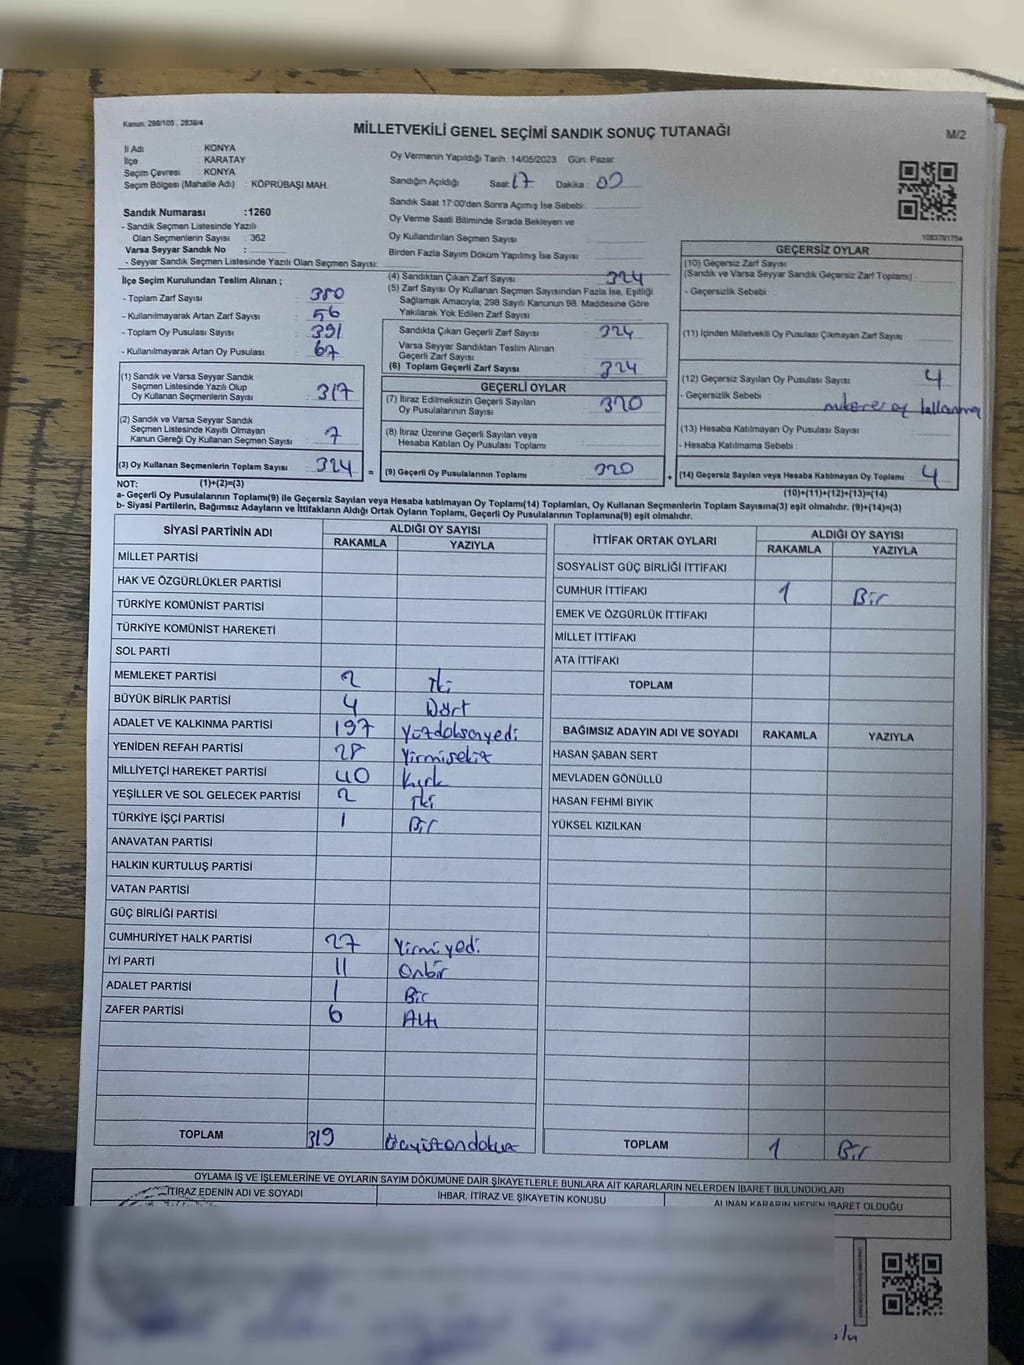 Kanun: 298/105 , 2839/4
MİLLETVEKİLİ GENEL SEÇİMİ SANDIK SONUÇ TUTANAĞI
M/2
İl Adı KONYA
İlçe KARATAY
Seçim Çevresi KONYA
Seçim Bölgesi (Mahalle Adı) : KÖPRÜBAŞI MAH.
Oy Vermenin Yapıldığı Tarih: 14/05/2023 Gün: Pazar
Sandığın Açıldığı Saat: 17 Dakika: 00
Sandık Saat 17:00'den Sonra Açımış İse Sebebi:
Oy Verme Saati Bitiminde Sırada Bekleyen ve
Oy Kullandırılan Seçmen Sayısı
Birden Fazla Sayım Döküm Yapılmış İse Sayısı :
Sandık Numarası :1260
- Sandık Seçmen Listesinde Yazılı
Olan Seçmenlerin Sayısı : 362
Varsa Seyyar Sandık No :
- Seyyar Sandık Seçmen Listesinde Yazılı Olan Seçmen Sayısı:
İlçe Seçim Kurulundan Teslim Alınan ;
- Toplam Zarf Sayısı : 380
- Kullanılmayarak Artan Zarf Sayısı : 56
- Toplam Oy Pusulası Sayısı : 391
- Kullanılmayarak Artan Oy Pusulası : 67
(1) Sandık ve Varsa Seyyar Sandık
Seçmen Listesinde Yazılı Olup
Oy Kullanan Seçmenlerin Sayısı : 317
(2) Sandık ve Varsa Seyyar Sandık
Seçmen Listesinde Kayıtlı Olmayan
Kanun Gereği Oy Kullanan Seçmen Sayısı : 7
(3) Oy Kullanan Seçmenlerin Toplam Sayısı : 324
(4) Sandıktan Çıkan Zarf Sayısı : 324
(5) Zarf Sayısı Oy Kullanan Seçmen Sayısından Fazla İse, Eşitliği
Sağlamak Amacıyla; 298 Sayılı Kanunun 98. Maddesine Göre
Yakılarak Yok Edilen Zarf Sayısı :
Sandıkta Çıkan Geçerli Zarf Sayısı : 324
Varsa Seyyar Sandıktan Teslim Alınan
Geçerli Zarf Sayısı
(6) Toplam Geçerli Zarf Sayısı : 324
GEÇERLİ OYLAR
(7) İtiraz Edilmeksizin Geçerli Sayılan
Oy Pusulalarının Sayısı : 320
(8) İtiraz Üzerine Geçerli Sayılan veya
Hesaba Katılan Oy Pusulası Toplamı :
= (9) Geçerli Oy Pusulalarının Toplamı : 320
GEÇERSİZ OYLAR
(10) Geçersiz Zarf Sayısı
(Sandık ve Varsa Seyyar Sandık Geçersiz Zarf Toplamı) :
- Geçersizlik Sebebi :
(11) İçinden Milletvekili Oy Pusulası Çıkmayan Zarf Sayısı :
(12) Geçersiz Sayılan Oy Pusulası Sayısı : 4
- Geçersizlik Sebebi :
(13) Hesaba Katılmayan Oy Pusulası Sayısı :
- Hesaba Katılmama Sebebi :
+ (14) Geçersiz Sayılan veya Hesaba Katılmayan Oy Toplamı : 4
NOT: (1)+(2)=(3)
(10)+(11)+(12)+(13)=(14)
a- Geçerli Oy Pusulalarının Toplamı(9) ile Geçersiz Sayılan veya Hesaba katılmayan Oy Toplamı(14) Toplamları, Oy Kullanan Seçmenlerin Toplam Sayısına(3) eşit olmalıdır. (9)+(14)=(3)
b- Siyasi Partilerin, Bağımsız Adayların ve İttifakların Aldığı Ortak Oyların Toplamı, Geçerli Oy Pusulalarının Toplamına(9) eşit olmalıdır.
SİYASİ PARTİNİN ADI ALDIĞI OY SAYISI
RAKAMLA YAZIYLA
MİLLET PARTİSİ
HAK VE ÖZGÜRLÜKLER PARTİSİ
TÜRKİYE KOMÜNİST PARTİSİ
TÜRKİYE KOMÜNİST HAREKETİ
SOL PARTİ
MEMLEKET PARTİSİ 2 İki
BÜYÜK BİRLİK PARTİSİ 4 Dört
ADALET VE KALKINMA PARTİSİ 197 Yüzdoksanyedi
YENİDEN REFAH PARTİSİ 28 Yirmisekiz
MİLLİYETÇİ HAREKET PARTİSİ 40 Kırk
YEŞİLLER VE SOL GELECEK PARTİSİ 2 İki
TÜRKİYE İŞÇİ PARTİSİ 1 Bir
ANAVATAN PARTİSİ
HALKIN KURTULUŞ PARTİSİ
VATAN PARTİSİ
GÜÇ BİRLİĞİ PARTİSİ
CUMHURİYET HALK PARTİSİ 27 Yirmiyedi
İYİ PARTİ 11 Onbir
ADALET PARTİSİ 1 Bir
ZAFER PARTİSİ 6 Altı
TOPLAM 319 Üçyüzondokuz
İTTİFAK ORTAK OYLARI ALDIĞI OY SAYISI
RAKAMLA YAZIYLA
SOSYALİST GÜÇ BİRLİĞİ İTTİFAKI
CUMHUR İTTİFAKI 1 Bir
EMEK VE ÖZGÜRLÜK İTTİFAKI
MİLLET İTTİFAKI
ATA İTTİFAKI
TOPLAM
BAĞIMSIZ ADAYIN ADI VE SOYADI RAKAMLA YAZIYLA
HASAN ŞABAN SERT
MEVLADEN GÖNÜLLÜ
HASAN FEHMİ BIYIK
YÜKSEL KIZILKAN
TOPLAM 1 Bir
OYLAMA İŞ VE İŞLEMLERİNE VE OYLARIN SAYIM DÖKÜMÜNE DAİR ŞİKAYETLERLE BUNLARA AİT KARARLARIN NELERDEN İBARET BULUNDUKLARI
İTİRAZ EDENİN ADI VE SOYADI İHBAR, İTİRAZ VE ŞİKAYETİN KONUSU ALINAN KARARIN NEDEN İBARET OLDUĞU